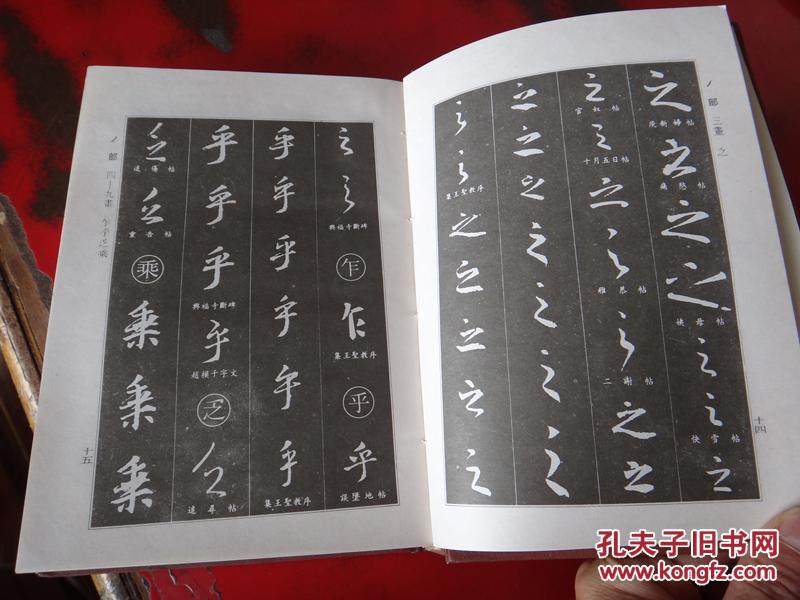 丿部 三畫 之
之
庾新婦帖
之
痛愁帖
之
之
姨母帖
之
之
快雪帖
之
之
官奴帖
之
十月五日帖
之
之
雅恭帖
之
二謝帖
之
之
之
之
之
之
之
之
之
之
之
集王聖教序
之
之
之
之
之
十四
丿部 四—九畫 乍乎乏乘
之
之
興福寺斷碑
乍
乍
集王聖教序
乎
乎
誤墮地帖
乎
乎
乎
乎
乎
乎
集王聖教序
乎
乎
乎
興福寺斷碑
乎
趙模千字文
乏
乏
遠辱帖
乏
乏
重告帖
乘
乘
乘
乘
十五
孔夫子旧书网
www.kongfz.com